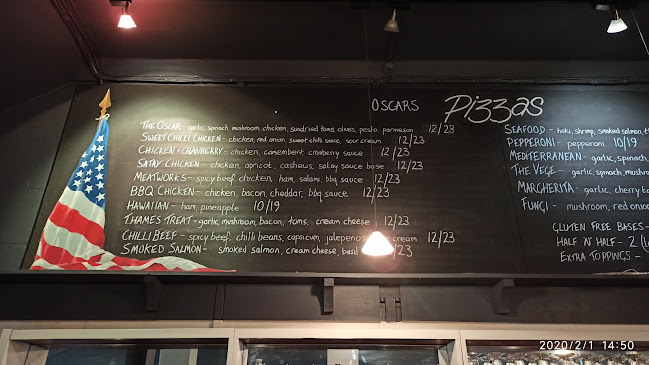 OSCARS Pizzas
THE OSCAR - garlic, spinach, mushroom, chicken, sundried toms, olives, pesto, parmesan 12/23
SWEET CHILLI CHICKEN - chicken, red onion, sweet chilli sauce, sour cream 12/23
CHICKEN & CRANBERRY - chicken, camembert, cranberry sauce 12/23
SATAY CHICKEN - chicken, apricot, cashews, satay sauce base 12/23
MEATWORKS - spicy beef, chicken, ham, salami, bbq sauce 12/23
BBQ CHICKEN - chicken, bacon, cheddar, bbq sauce 12/23
HAWAIIAN - ham, pineapple 10/19
THAMES TREAT - garlic, mushroom, bacon, toms, cream cheese 12/23
CHILLI BEEF - spicy beef, chilli beans, capsicum, jalepenos, cream 12/23
SMOKED SALMON - smoked salmon, cream cheese, basil /23
SEAFOOD - hoki, shrimp, smoked salmon, t
PEPPERONI - pepperoni 10/19
MEDITERRANEAN - garlic, spinach,
THE VEGE - garlic, spinach, mushroom
MARGHERITA - garlic, cherry to
FUNGI - mushroom, red onion
GLUTEN FREE BASES -
HALF N HALF - 2
EXTRA TOPPINGS -
2020/2/1 14:50